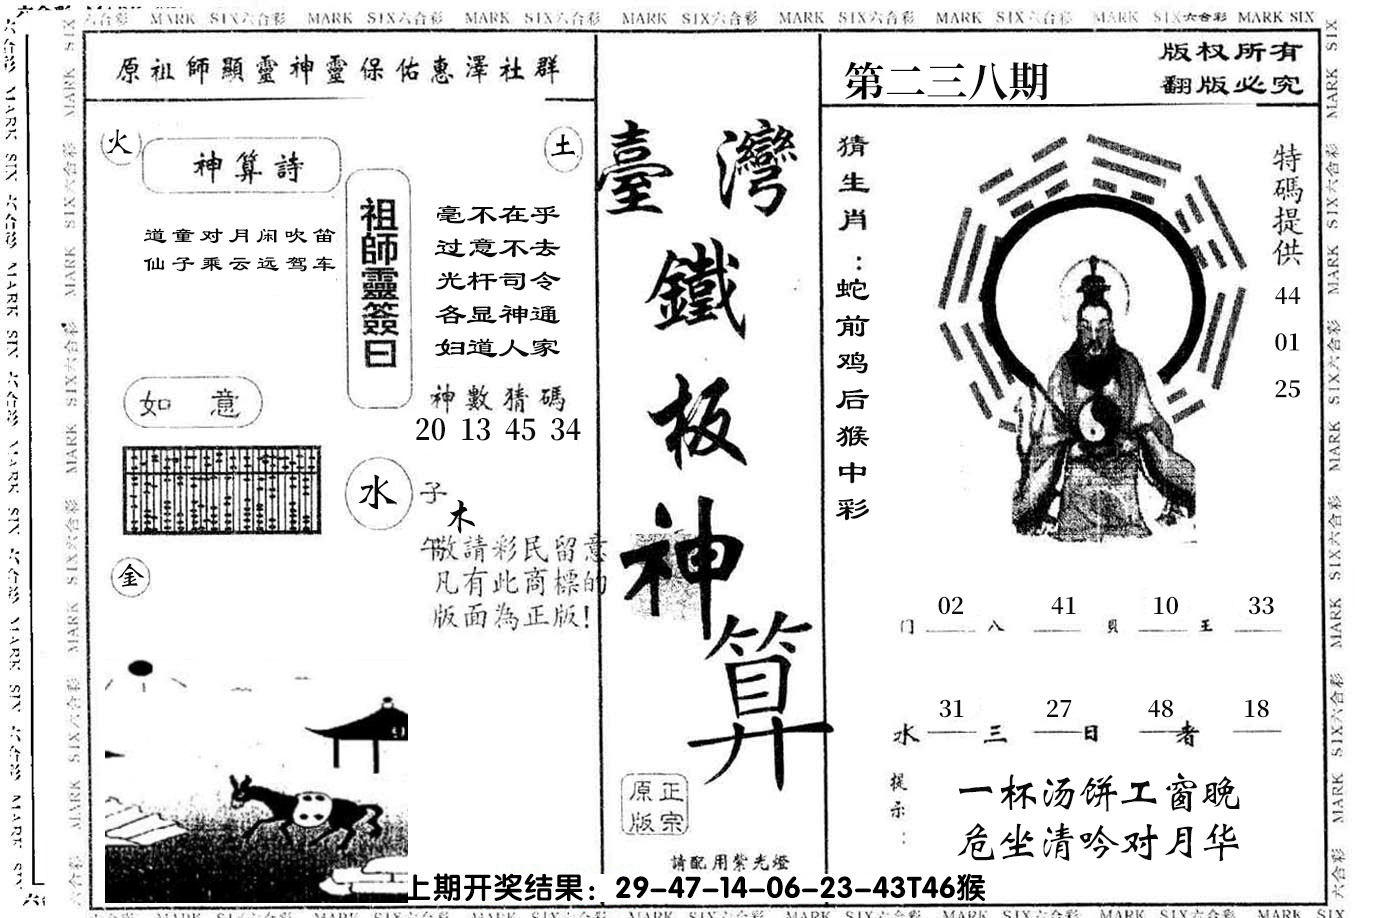 原祖師顯靈神靈保佑惠澤社群
火
神算詩
土
道童对月闲吹笛
仙子乘云远驾车
祖師靈簽曰
毫不在乎
过意不去
光杆司令
各显神通
妇道人家
神數猜碼
20 13 45 34
如意
水
子
木
午
敬請彩民留意
凡有此商標的
版面為正版!
金
臺灣
鐵
板
神
算
正宗
原版
請配用紫光燈
第二三八期
版权所有
翻版必究
猜生肖:蛇前鸡后猴中彩
特碼提供
44
01
25
02 41 10 33
门 八 貝 王
31 27 48 18
水 三 日 者
提示:
一杯汤饼工窗晚
危坐清吟对月华
上期开奖结果：29-47-14-06-23-43T46猴
MARK SIX六合彩 MARK SIX六合彩 MARK SIX六合彩 MARK SIX六合彩 MARK SIX六合彩 MARK SIX六合彩 MARK SIX六合彩 MARK SIX